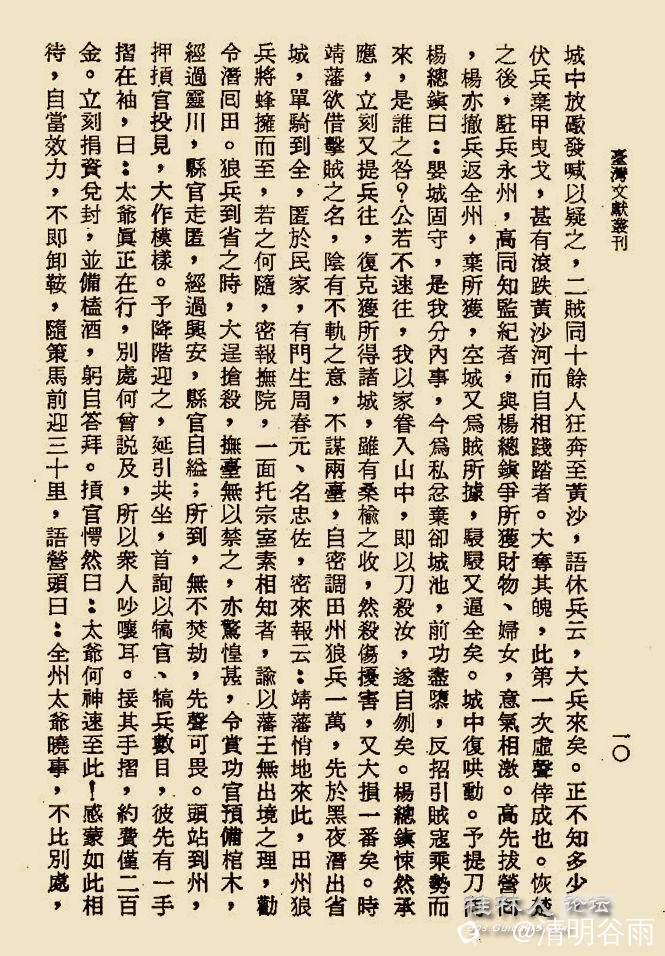 臺灣文獻叢刊
一〇
城中放礮發喊以疑之，二賊同十餘人狂奔至黃沙，語休兵云，大兵來矣。正不知多少
伏兵棄甲曳戈，甚有滾跌黃沙河而自相踐踏者。大奪其魄，此第一次虛聲倖成也。恢楚
之後，駐兵永州，高同知監紀者，與楊總鎮爭所獲財物、婦女，意氣相激。高先拔營回
，楊亦撤兵返全州，棄所獲，空城又爲賊所據，駸駸又逼全矣。城中復哄動。予提刀
楊總鎮曰：嬰城固守，是我分內事，今爲私忿棄卻城池，前功盡隳，反招引賊寇乘勢而
來，是誰之咎？公若不速往，我以家眷入山中，即以刀殺汝，遂自刎矣。楊總鎮悚然承
應，立刻又提兵往，復克獲所得諸城，雖有桑榆之收，然殺傷擾害，又大損一番矣。時
靖藩欲借擊賊之名，陰有不軌之意，不謀兩臺，自密調田州狼兵一萬，先於黑夜潛出省
城，單騎到全，匿於民家，有門生周春元、名忠佐，密來報云：靖藩悄地來此，田州狼
兵將蜂擁而至，若之何隨，密報撫院，一面托宗室素相知者，諭以藩王無出境之理，勸
令潛囘田。狼兵到省之時，大逞搶殺，撫臺無以禁之，亦驚惶甚，令賞功官預備棺木，
經過靈川，縣官走匿，經過興安，縣官自縊；所到，無不焚劫，先聲可畏。頭站到州，
押摃官投見，大作模樣。予降階迎之，延引共坐，首詢以犒官、犒兵數目，彼先有一手
摺在袖，曰：太爺眞正在行，別處何曾說及，所以衆人吵嚷耳。接其手摺，約費僅二百
金。立刻捐資兌封，並備榼酒，躬自答拜。摃官愕然曰：太爺何神速至此！感蒙如此相
待，自當效力，不即卸鞍，隨策馬前迎三十里，語營頭曰：全州太爺曉事，不比別處，
桂林人论坛
@清明谷雨